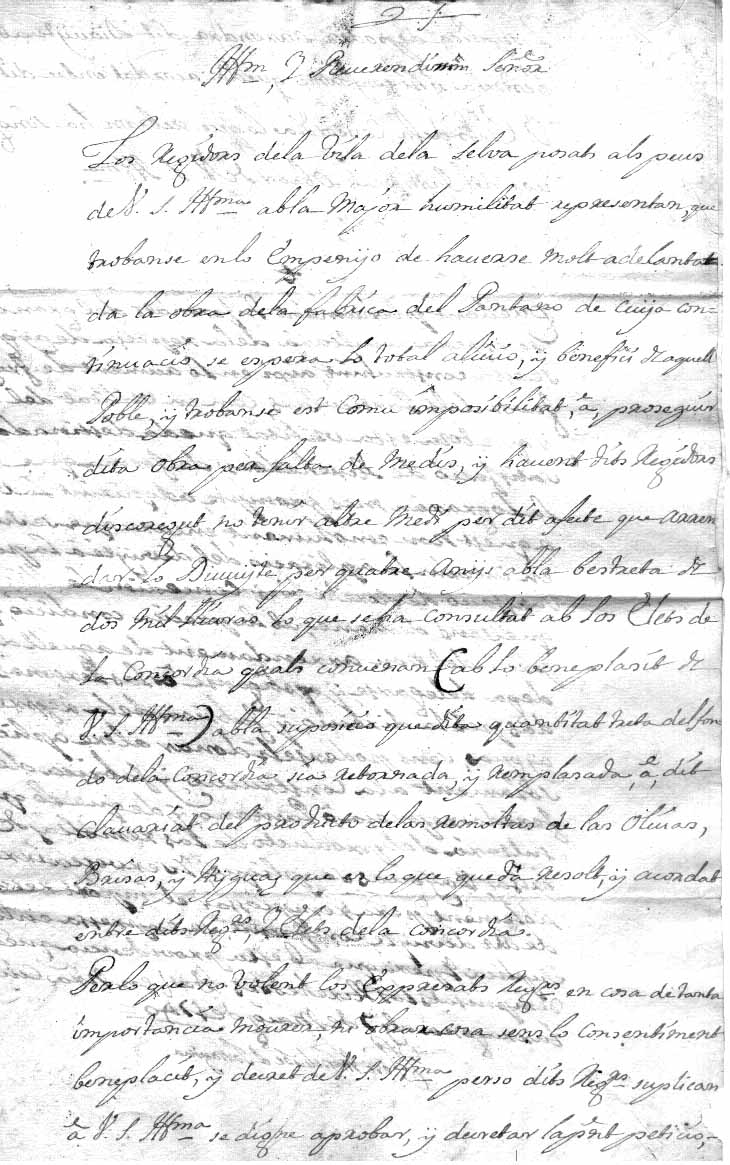 Illm, y Reverendissim Señor
Los Regidors dela Vila dela Selva posats als peus
de V. S. Illma abla Major humilitat representan, que
trobanse en lo Empenyo de haverse molt adelantat
da la obra dela fabrica del Pantano de cuija con=
tinuació se espera lo total alivio, y benefici de aquell
Poble, y trobanse est Comu imposibilitat, á, proseguir
dita obra per falta de Medis, y havent dits Regidors
discoregut no tenir altre Medi per dit afecte que arren
dar lo Duuyte per quatre Anys abla bestreta de
dos mil lliuras lo que seha consultat ab los Elets de
la Concordia quals convenan (ab lo beneplasit de
V. S. Illma) abla suposicio que dita quantitat treta del fon
do dela Concordia sia retornada, y remplasada, á, dit
clavariat del producto de las remoltas de las Olivas,
Brisas, y que es lo que queda resolt, y acordat
entre dits Regrs, y Elets dela concordia.
Perlo que no volent los Expresats Regrs en cosa de tanta
importancia mourer, ni obrar cosa sens lo Consentiment
beneplacit, y decret de V. S. Illma perso dits Regrs suplican
á V. S. Illma se digne aprobar, y decretar lapnt peticio,